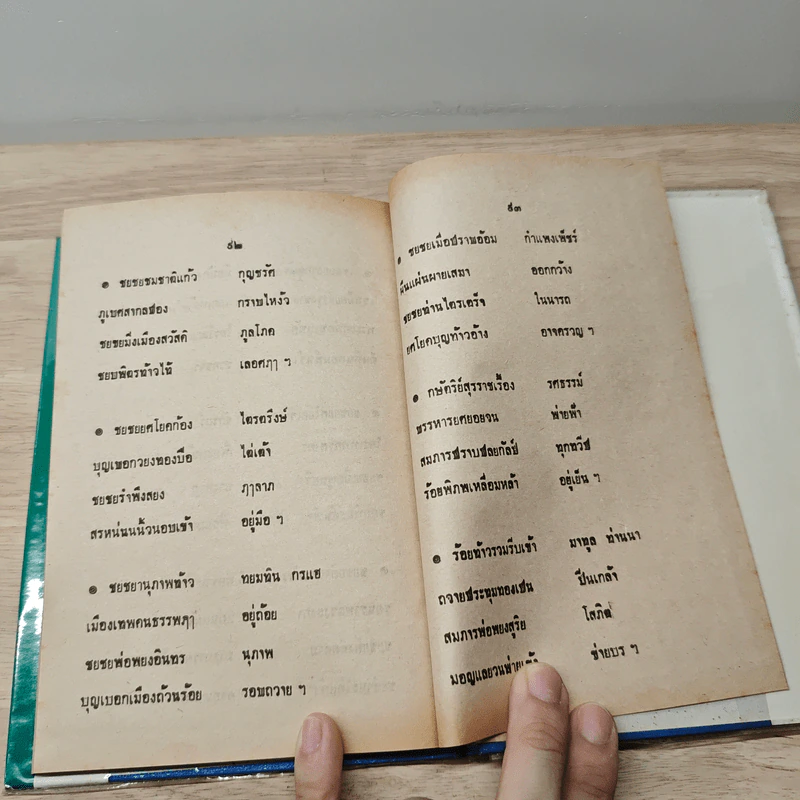 ๙๒
๏ ชยชยชมชาติแก้ว กุญชรัศ
ภูเบศสากลปอง กราบไหง้ว
ชยชยมิ่งเมืองสวัสดิ ภูลโภค
ชยบพิตรท้าวไท้ เลอศฦๅ ฯ
๏ ชยชยยศโยคก้อง ไตรตรึงษ์
บุญเพอกวยงทองบือ ไต่เต้า
ชยชยรำพึงสยง ฦๅลาภ
สรหน่นนน้วนอบเข้า อยู่มือ ฯ
๏ ชยชยานุภาพท้าว ทยมทิน กรแฮ
เมืองเทพคนธรรพฦๅ อยู่ถ้อย
ชยชยพ่อพยงอินทร นุภาพ
บุญเบอกเมืองถ้วนร้อย รอบถวาย ฯ
๙๓
๏ ชยชยเมื่อปราบอ้อม กำแพงเพ็ชร์
ผืนแผ่นผายเสมา ออกกว้าง
ชยชยท่านไตรเตร็จ ในนารถ
ยศโยคบุญท้าวอ้าง อาจครวญ ฯ
๏ กษัตริย์สุรราชเรื้อง รศธรรม์
พรรหารยศยอยจน พ่ายฟ้า
สมภารปราบปลยกัลป์ ทุกทวีป
ร้อยพิภพเหลื่อมหล้า อยู่เย็น ฯ
๏ ร้อยท้าวรวมรีบเข้า มาทูล ท่านนา
ถวายประทุมทองเปน ปิ่นเกล้า
สมภารพ่อพยงสูริย โสภิต
มอญแลยวนพ่ายเต้า ข่ายบร ฯ